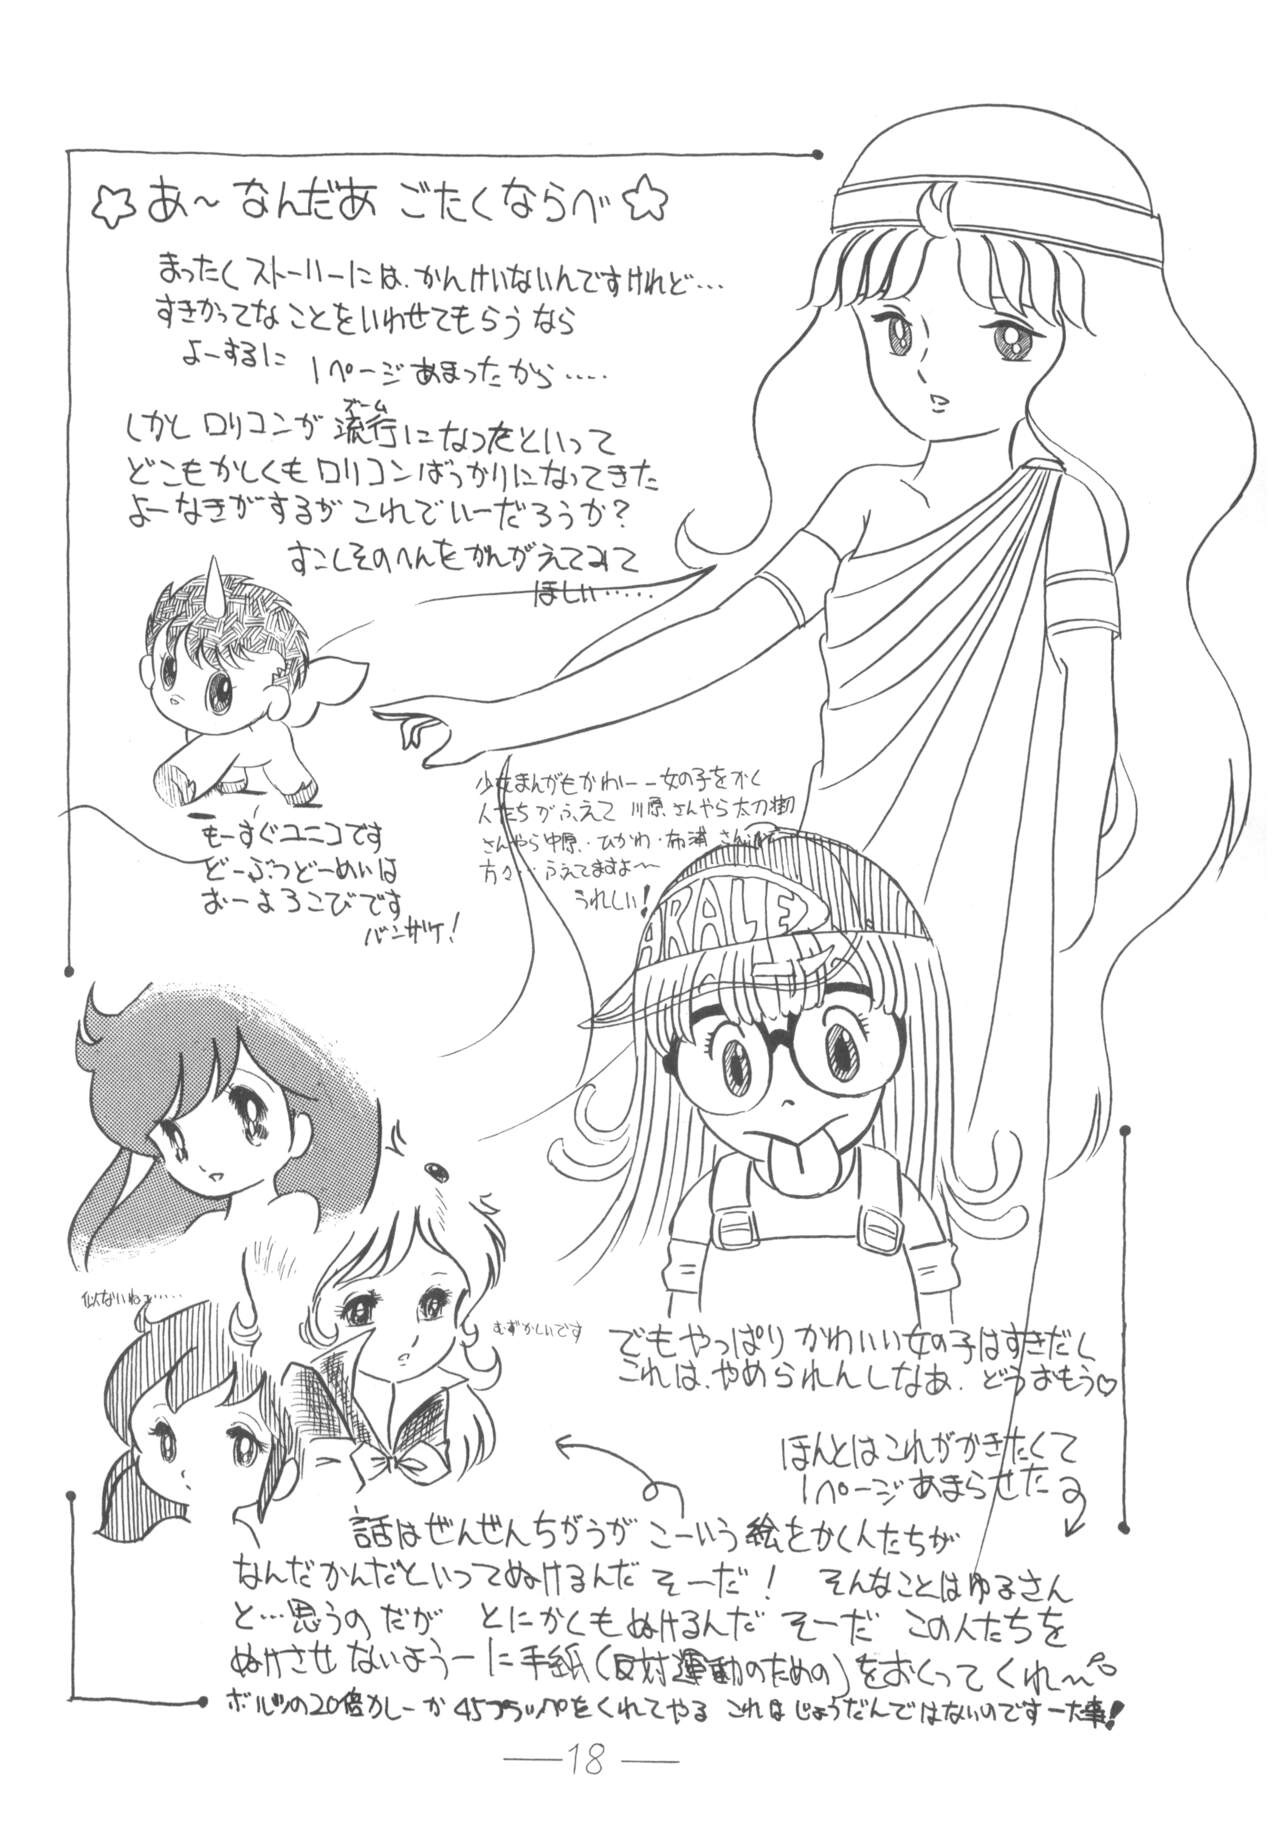 ☆ あ～ なんだあ ごたくならべ ☆
まったくストーリーには、かんけいないんですけれど…
すきかってなことをいわせてもらうなら
よーするに 1ページあまったから……
ブーム
しかし ロリコンが 流行になったといって
どこもかしくも ロリコンばっかりになってきた
よーなきがするが これでいーだろうか?
すこしそのへんをかんがえてみて
ほしい……
もーすぐユニコです
どーぶつどーめいは
おーよろこびです
バンザイ!
少女まんがもかわいー女の子をかく
人たちがふえて 川原さんやら太刀掛
さんやら中原・ひかわ・布浦さん
方々…ふえてますよ～
うれしい!
ARALE
似ないねェ……
むずかしいです
でもやっぱり かわいい女の子はすきだし
これは、やめられんしなあ. どうおもう♡
ほんとはこれがかきたくて
1ページあまらせた
話はぜんぜんちがうが こーいう絵をかく人たちが
なんだかんだといってぬけるんだ そーだ! そんなことはゆるさん
と…思うのだが とにかくもぬけるんだ そーだ この人たちを
ぬけさせないようーに手紙(反対運動のための)をおくってくれ～
ボルツの20倍カレーか 45プラッペをくれてやる これはじょうだんではないのです 一大事!
18